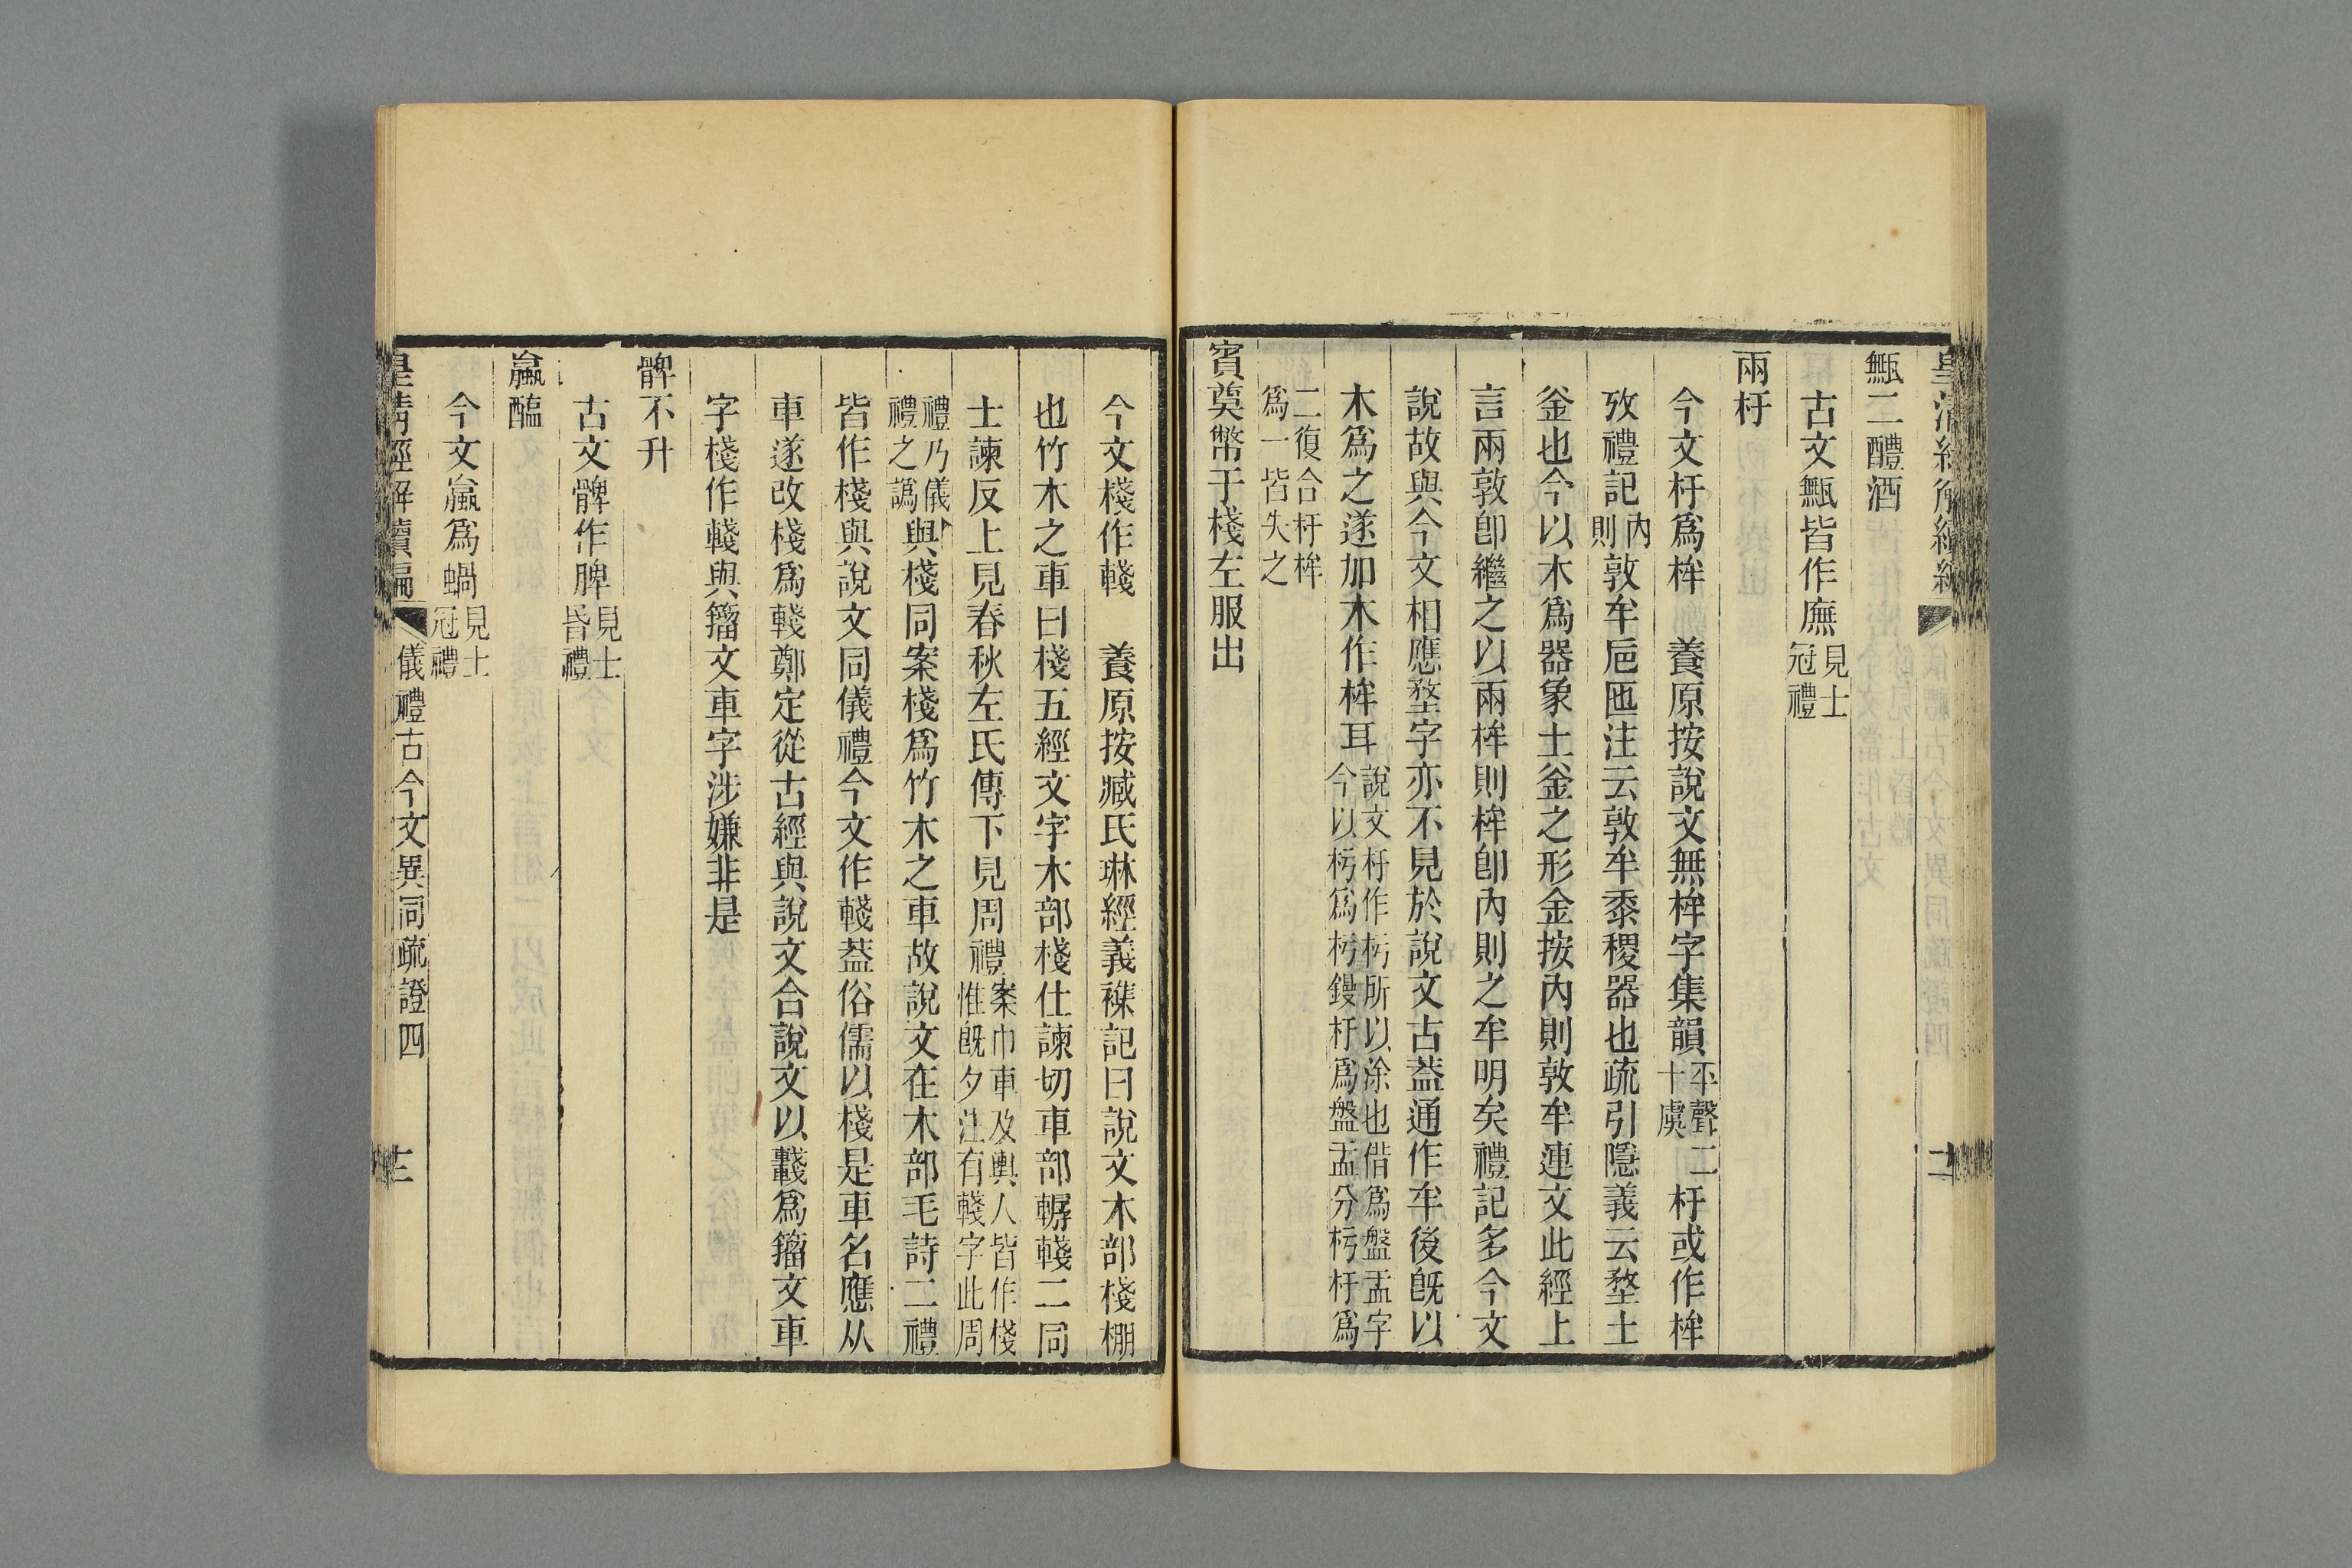 甒二醴酒
古文甒皆作廡見士冠禮
兩杅
今文杅爲桙　養原按說文無桙字集韻平聲十虞二杅或作桙
攷禮記內則敦牟巵匜注云敦牟黍稷器也疏引隱義云堥土
釜也今以木爲器象土釜之形金按內則敦牟連文此經上
言兩敦卽繼之以兩桙則桙卽內則之牟明矣禮記多今文
說故與今文相應堥字亦不見於說文古葢通作牟後旣以
木爲之遂加木作桙耳說文杅作杇所以涂也借爲盤盂字今以杇爲杇鏝杅爲盤盂分杇杅爲
二復合杅桙爲一皆失之
賓奠幣于棧左服出
今文棧作輚　養原按臧氏琳經義襍記曰說文木部棧棚
也竹木之車曰棧五經文字木部棧仕諫切車部轏輚二同
士諫反上見春秋左氏傳下見周禮案巾車及輿人皆作棧惟旣夕注有輚字此周
禮乃儀禮之譌與棧同案棧爲竹木之車故說文在木部毛詩二禮
皆作棧與說文同儀禮今文作輚葢俗儒以棧是車名應从
車遂改棧爲輚鄭定從古經與說文合說文以䡠爲籀文車
字棧作輚與籀文車字涉嫌非是
髀不升
古文髀作脾見士昏禮
蠃醢
今文蠃爲蝸見士冠禮
皇清經解續編　儀禮古今文異同疏證四